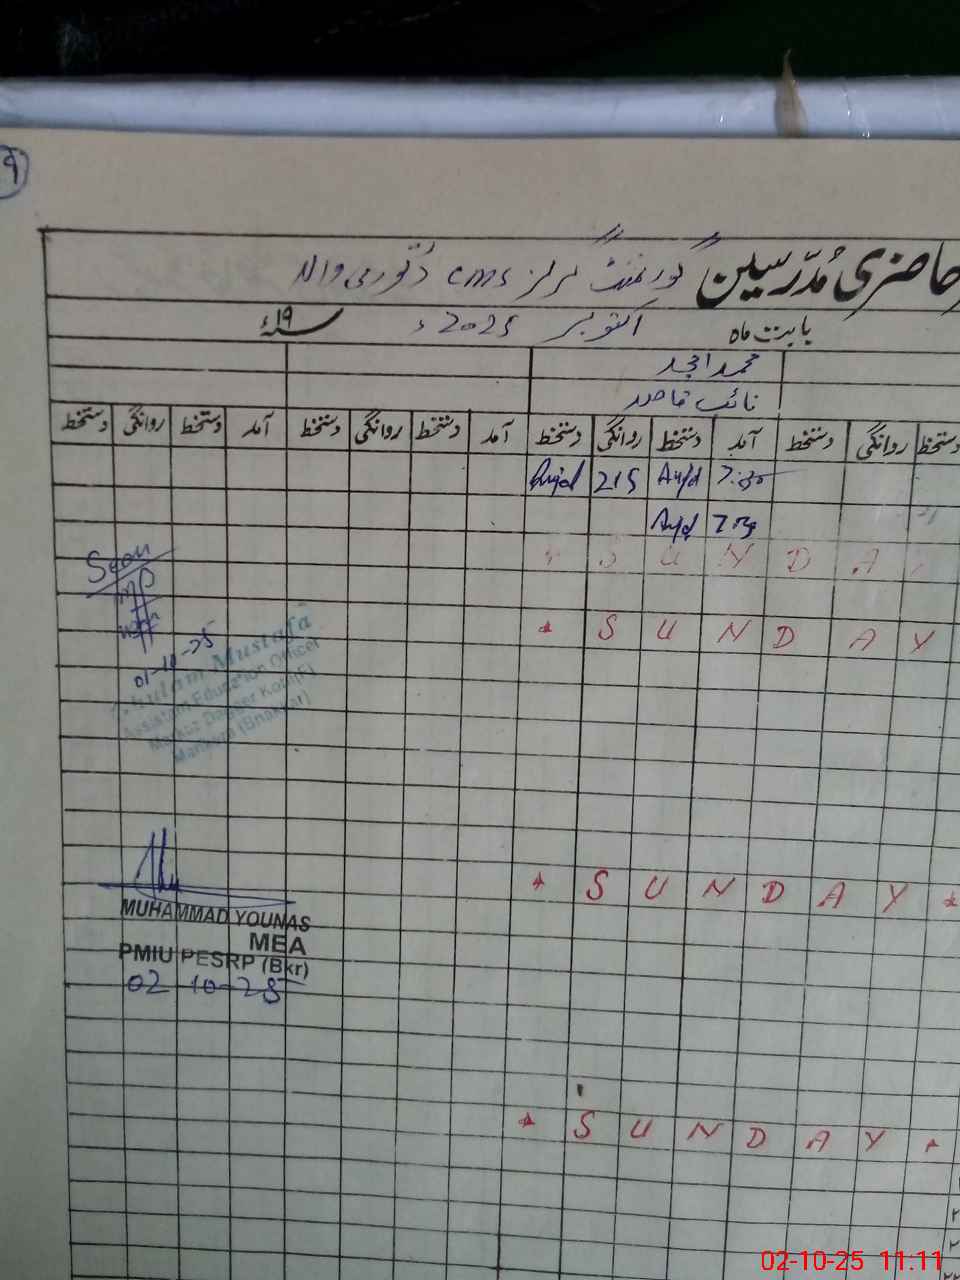 9
حاضری مُدرّسین گورنمنٹ گرلز cms
بابت ماہ اکتوبر 2025ء ۱۹ء
محمد امجد
نائب قاصد
دستخط روانگی دستخط آمد دستخط روانگی دستخط آمد دستخط روانگی دستخط آمد دستخط روانگی دستخط
7:30 Amjd 215
Amjd
* S U N D A
* S U N D A Y
Seen
01-10-25
Ghulam Mustafa
Assistant Education Officer
(Bhakkar)
* S U N D A Y *
MUHAMMAD YOUNAS
MEA
PMIU PESRP (Bkr)
02-10-25
* S U N D A Y *
02-10-25 11:11